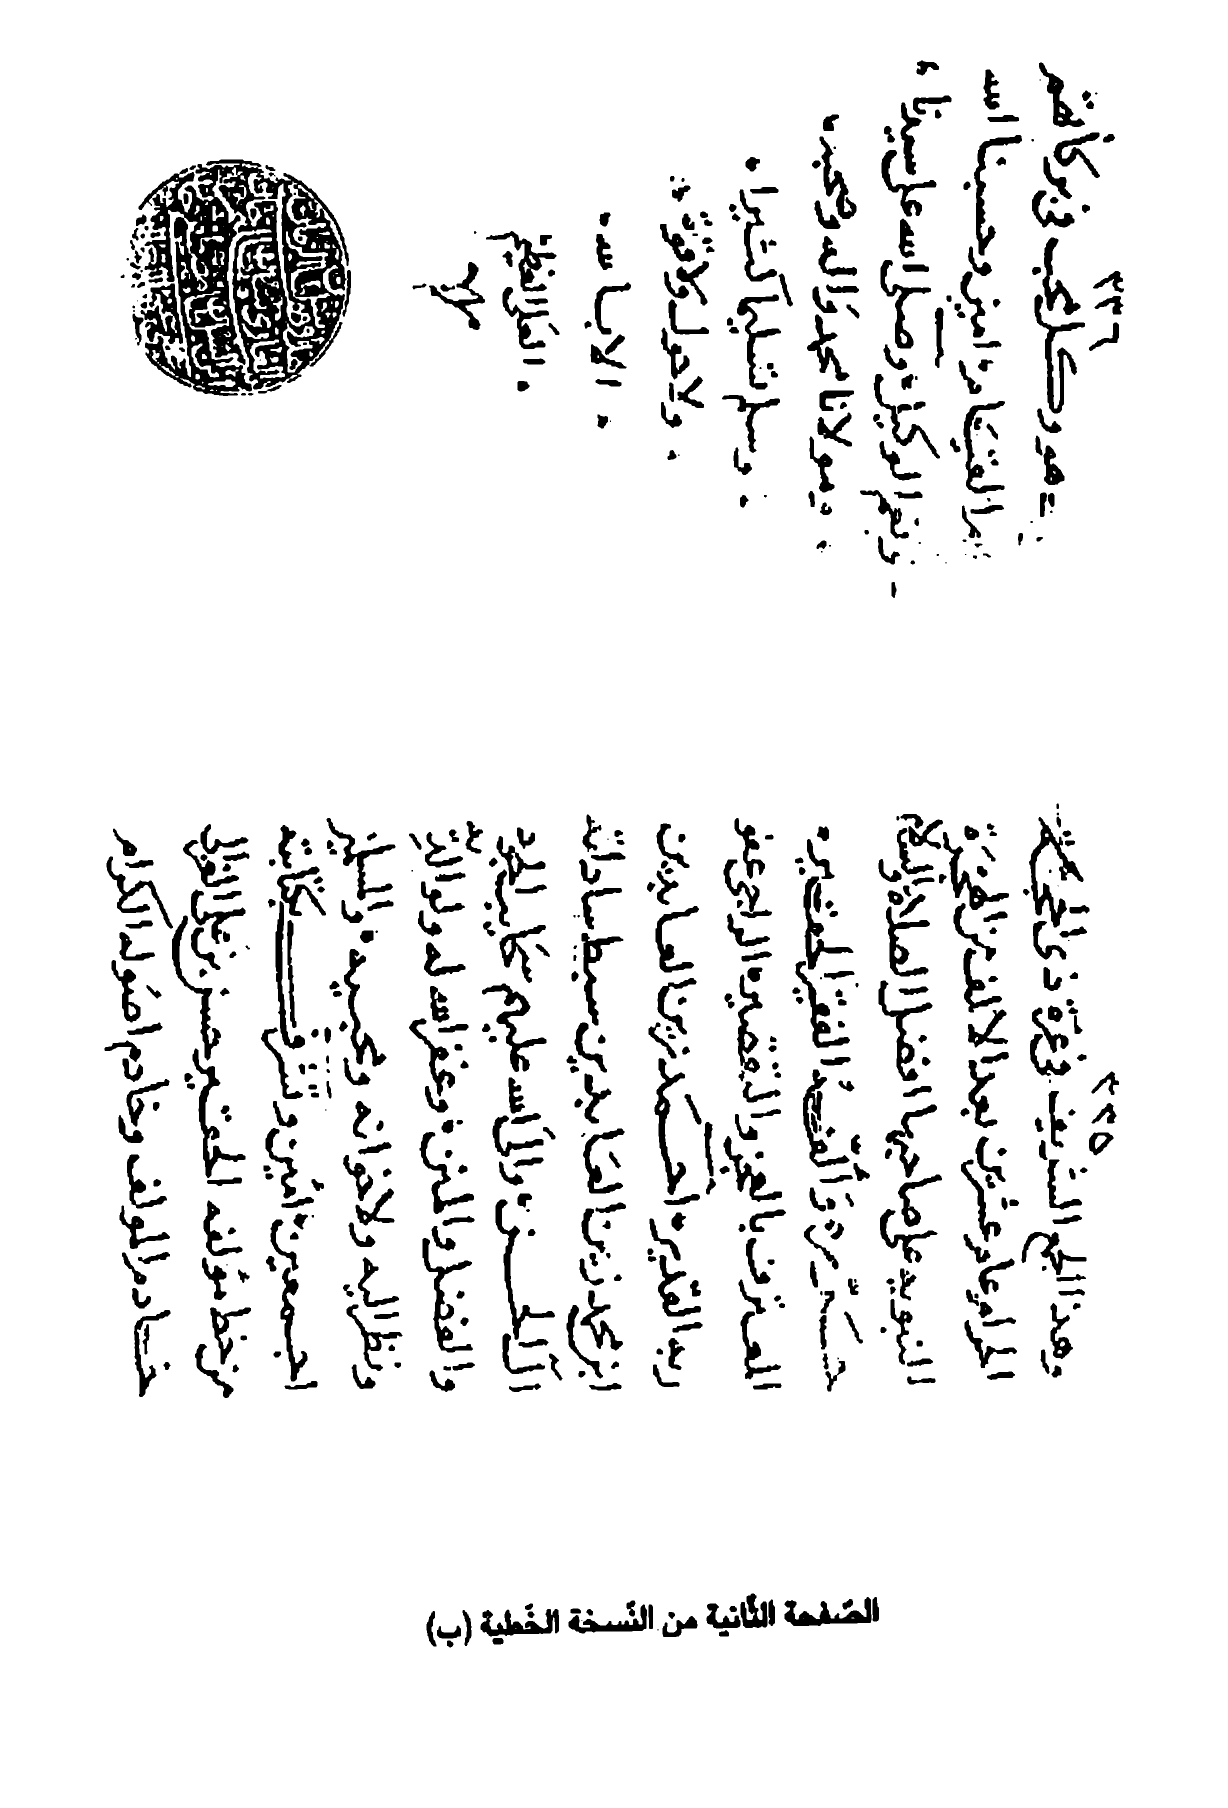 ٢٢٥
وهذا الجمع الشريف في غرة ذي الحجة
الحرام عام عشرين بعد الألف من الهجرة
النبويه على صاحبها افضل الصلاة والسلام
الفقير الحقير
المعترف بالعجز والتقصير الراجي عفو
ربه القدير احمد بن زين العابدين
ابن محمد زين العابدين سبط سادات
آل الحسن والى الله عليهم سحايب الجود
والفضل والمنن وغفر الله له ولوالديه
ونظر اليه ولاخوانه ومحبيه والمسلمين
اجمعين امين وتشرف بكتابته
من خط مؤلفه الحقير حسن بن علي
خادم المولف وخادم اصوله الكرام
٢٢٦
هو وكل محب في بركاتهم
القيامه امين وحسبنا الله
ونعم الوكيل وصلى الله على سيدنا
ومولانا محمد واله وصحبه
وسلم تسليما كثيرا
ولا حول ولا قوة
الا بالله
العلى العظيم
الصّفحة الثّانية من النّسخة الخّطية (ب)